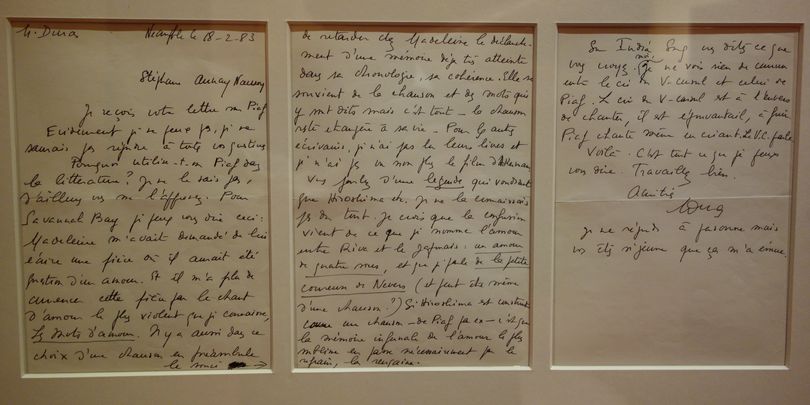 M. Duras Neauphle le 18-2-83
Stéphane
Je reçois votre lettre sur Piaf
Evidemment je ne peux pas, je ne
saurais pas répondre à toutes vos questions
Pourquoi utilise-t-on Piaf dans
la littérature? Je ne le sais pas,
d'ailleurs vous me l'apprenez. Pour
Savannah Bay je peux vous dire ceci:
Madeleine m'avait demandé de lui
écrire une pièce où il aurait été
question d'un amour. Et il m'a plu de
commencer cette pièce par le chant
d'amour le plus violent que je connaisse,
Les mots d'amour. Il y a aussi dans ce
choix d'une chanson en préambule
le souci →
de retarder chez Madeleine le déclenche-
ment d'une mémoire déjà très atteinte
dans sa chronologie, sa cohérence. Elle se
souvient de la chanson et des mots qui
y sont dits mais c'est tout – la chanson
reste étrangère à sa vie – Pour les autres
écrivains, je n'ai pas lu leurs livres et
je n'ai pas vu non plus le film d'
Vous parlez d'une légende qui voudrait
que Hiroshima etc. Je ne la connaissais
pas du tout. Je crois que la confusion
vient de ce que je nomme l'amour
entre Riva et le Japonais: un amour
de quatre sous, et que je parle de la petite
coureuse de Nevers (et peut-être même
d'une chanson?) Si Hiroshima est construit
comme une chanson – de Piaf par ex – c'est que
la mémoire infernale de l'amour le plus
sublime en passe nécessairement par le
refrain, la rengaine.
Sur India Song vous dites ce que
vous voyez. moi Je ne vois rien de commun
entre le cri du V-consul et celui de
Piaf. Le cri du V-consul est à l'envers
de chanter, il est épouvantail, à fuir
Piaf chante même en criant. Le V.C. parle
Voilà. C'est tout ce que je peux
vous dire. Travaillez bien.
Amitié
Duras
Je ne réponds à personne mais
vous êtes si jeune que ça m'a émue.